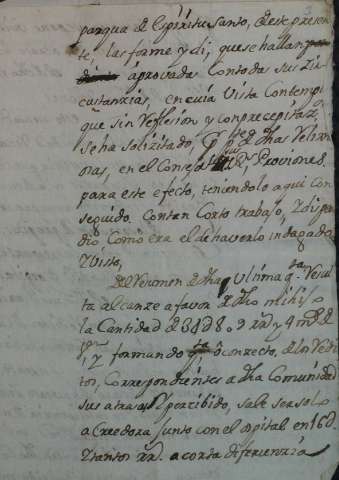 pasqua de Espiritu Santo, de este presen
te, las forme y di, que se hallan
aprovadas Con todas sus Zir
custanzias, en cuia Vista Contemplo
que sin Reflesion y con precepitaz.
se ha solizitado, dhas
en el Consejo Proviones
para este efecto, teniendolo aqui con
seguido. Con tan Corto trabajo, Z dispen
dio Como era el de haverlo indagado
Z Visto,
Del Resumen de dha Ultima q.ta Resul
ta alcanze a favor de dho mi hijo
la Cantidad de 3 9 rr.d y 4 m.s de
V.n, y formando conzecto, de los Redi
tos, Correspondientes a dha Comunidad
sus atrasos percibido, sale ser solo
aCreedora junto con el ospital en 16d.
Z tantos rr.d a corta diferienzia